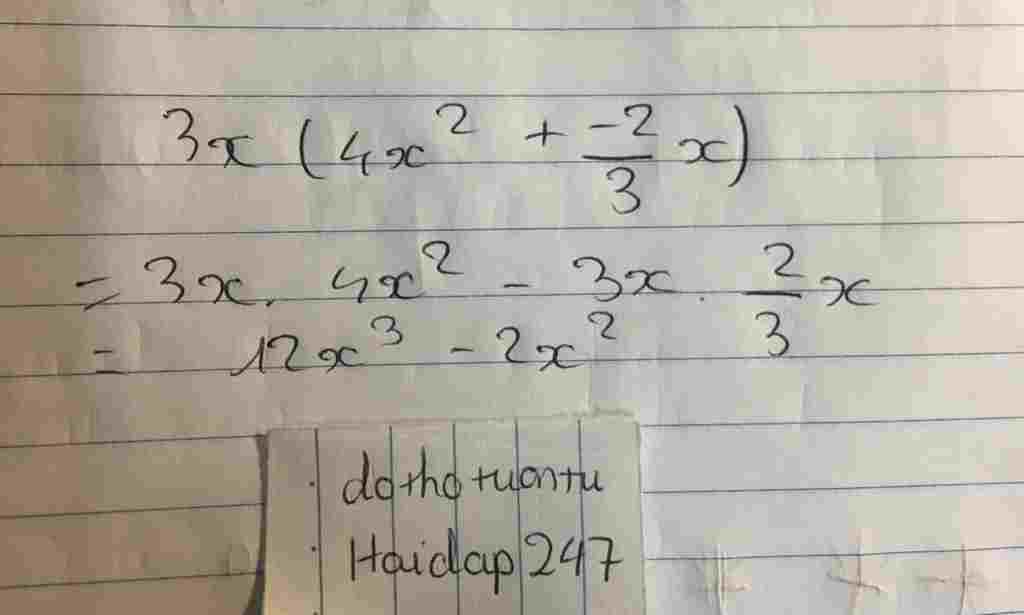 3x (4x² + -2/3 x)
= 3x . 4x² - 3x . 2/3 x
= 12x³ - 2x²
dothotuantu
Hoidap247